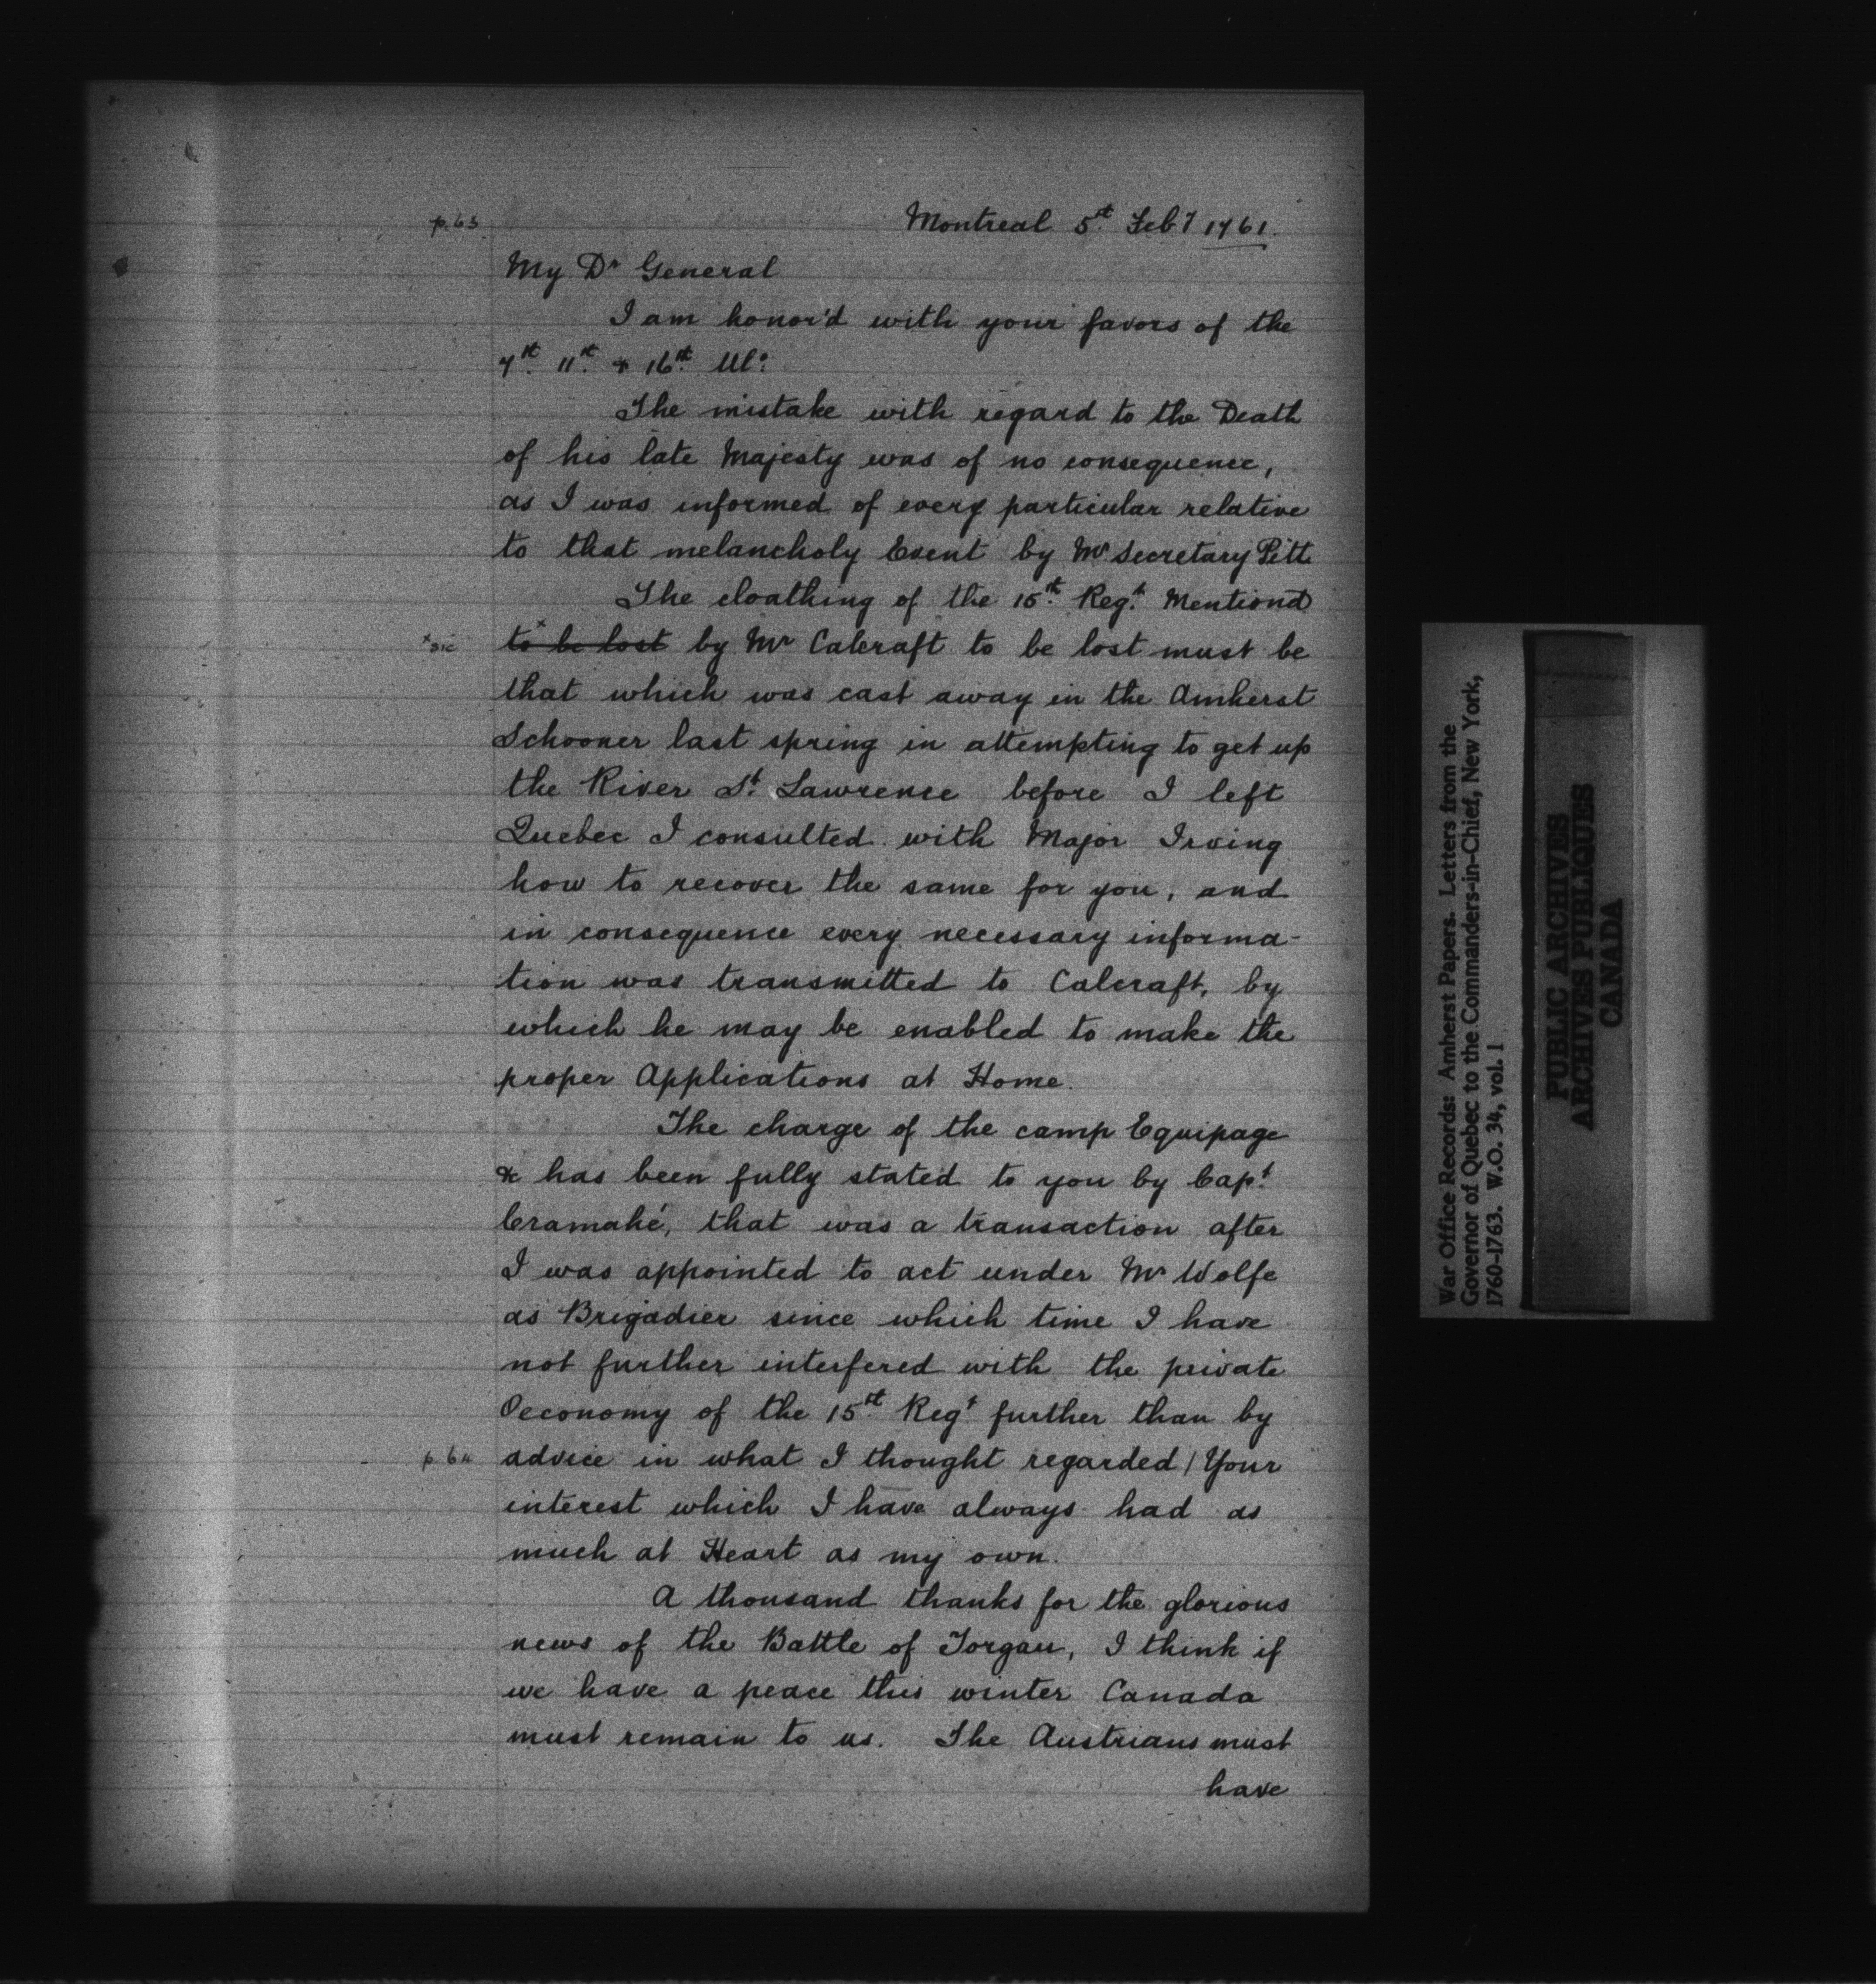 p. 63
Montreal 5st Feby 1761.
My Dr General
I am honor'd with your favors of the
7st 11st & 16st Ulo
The mistake with regard to the Death
of his late Majesty was of no consequence,
as I was informed of every particular relative
to that melancholy Event by Mr Secretary Pitt
The cloathing of the 15st Regt Mentiond
x sic
to be lost x by Mr Calcraft to be lost must be
that which was cast away in the Amherst
Schooner last spring in attempting to get up
the River St Lawrence before I left
Quebec I consulted with Major Irving
how to recover the same for you, and
in consequence every necessary informa-
tion was transmitted to Calcraft, by
which he may be enabled to make the
proper Applications at Home.
The charge of the camp Equipage
&c has been fully stated to you by Capt
Cramahé, that was a transaction after
I was appointed to act under Mr Wolfe
as Brigadier since which time I have
not further interfered with the private
Oeconomy of the 15st Regt further than by
p. 64
advice in what I thought regarded / Your
interest which I have always had as
much at Heart as my own.
A thousand thanks for the glorious
news of the Battle of Torgau, I think if
we have a peace this winter Canada
must remain to us. The Austrians must
have
War Office Records: Amherst Papers. Letters from the
Governor of Quebec to the Commanders-in-Chief, New York,
1760-1763. W.O. 34, vol. 1
PUBLIC ARCHIVES
ARCHIVES PUBLIQUES
CANADA